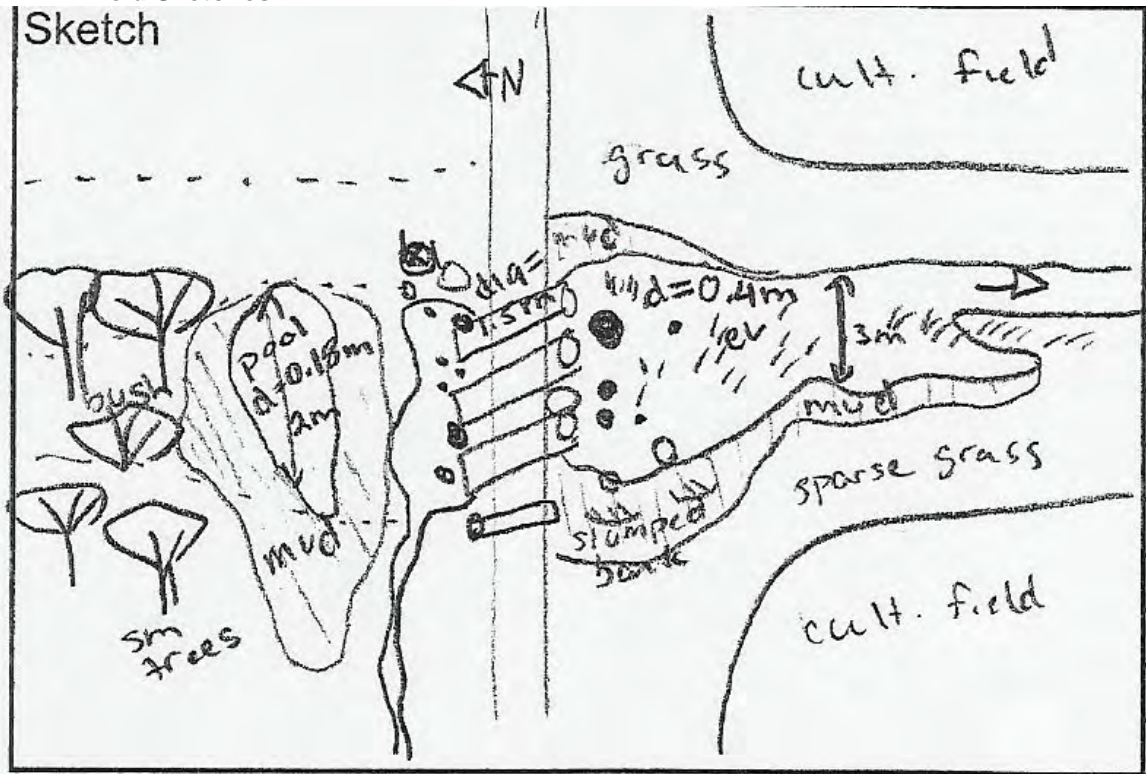 Sketch
N
cult. field
grass
mud
dia=
1.5m
d=0.4m
3m
pool
d=0.15m
2m
bush
mud
mud
sparse grass
slumped
bank
sm
trees
cult. field